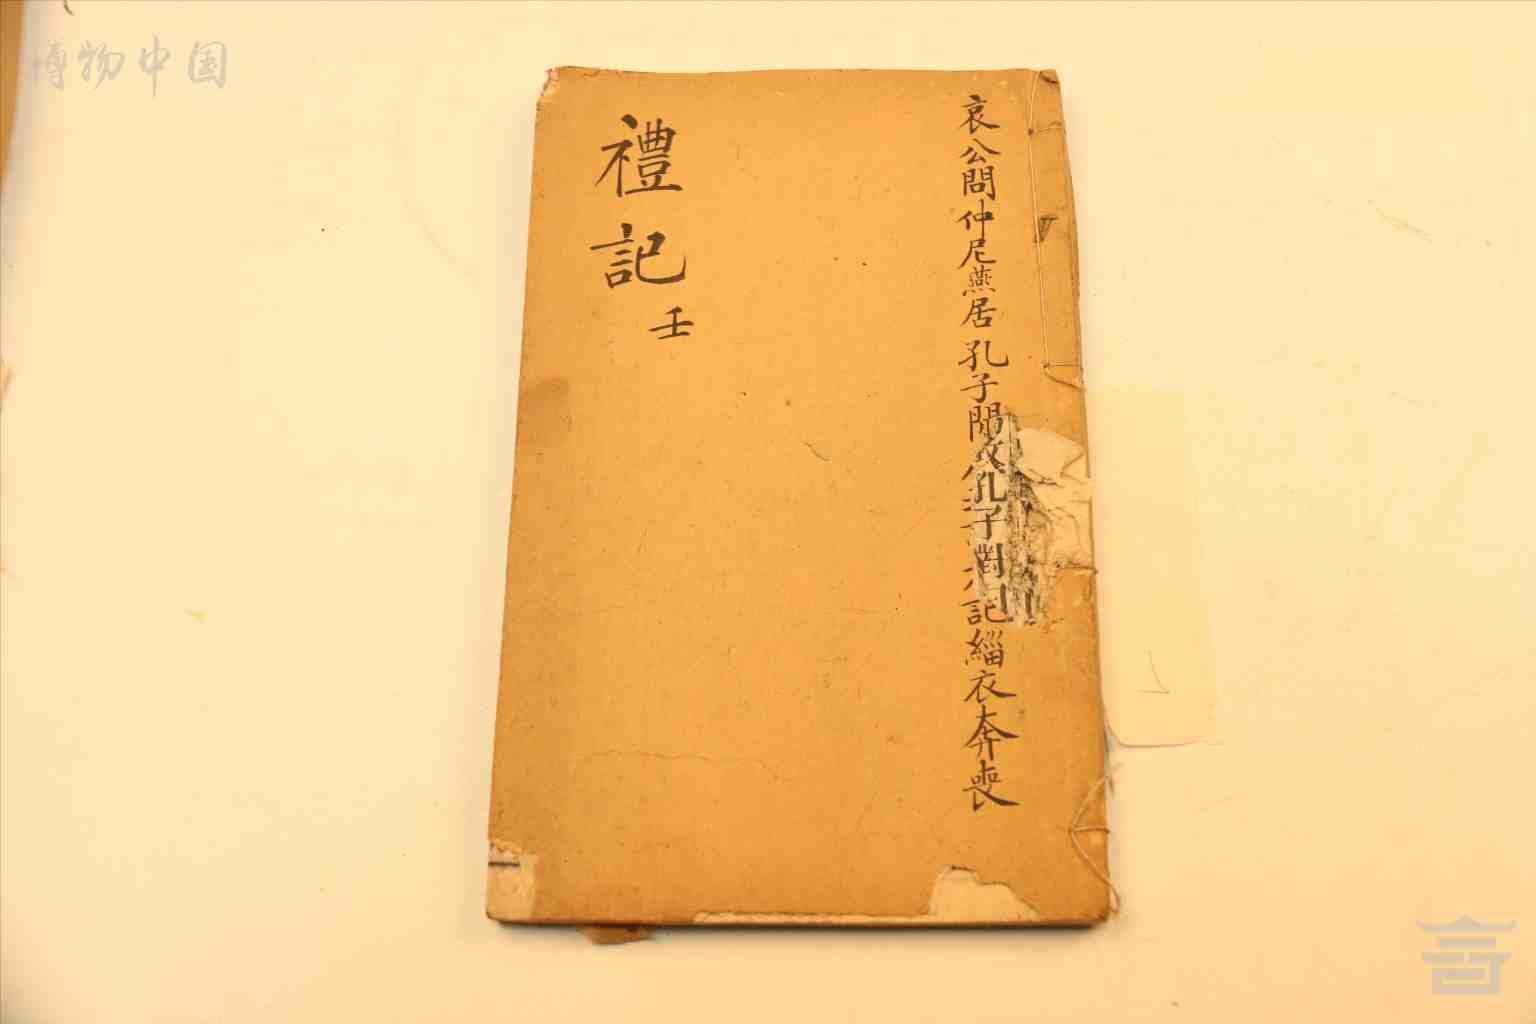 博物中国
哀公問仲尼燕居孔子閒 孔子對曰 記緇衣奔喪
禮記
壬